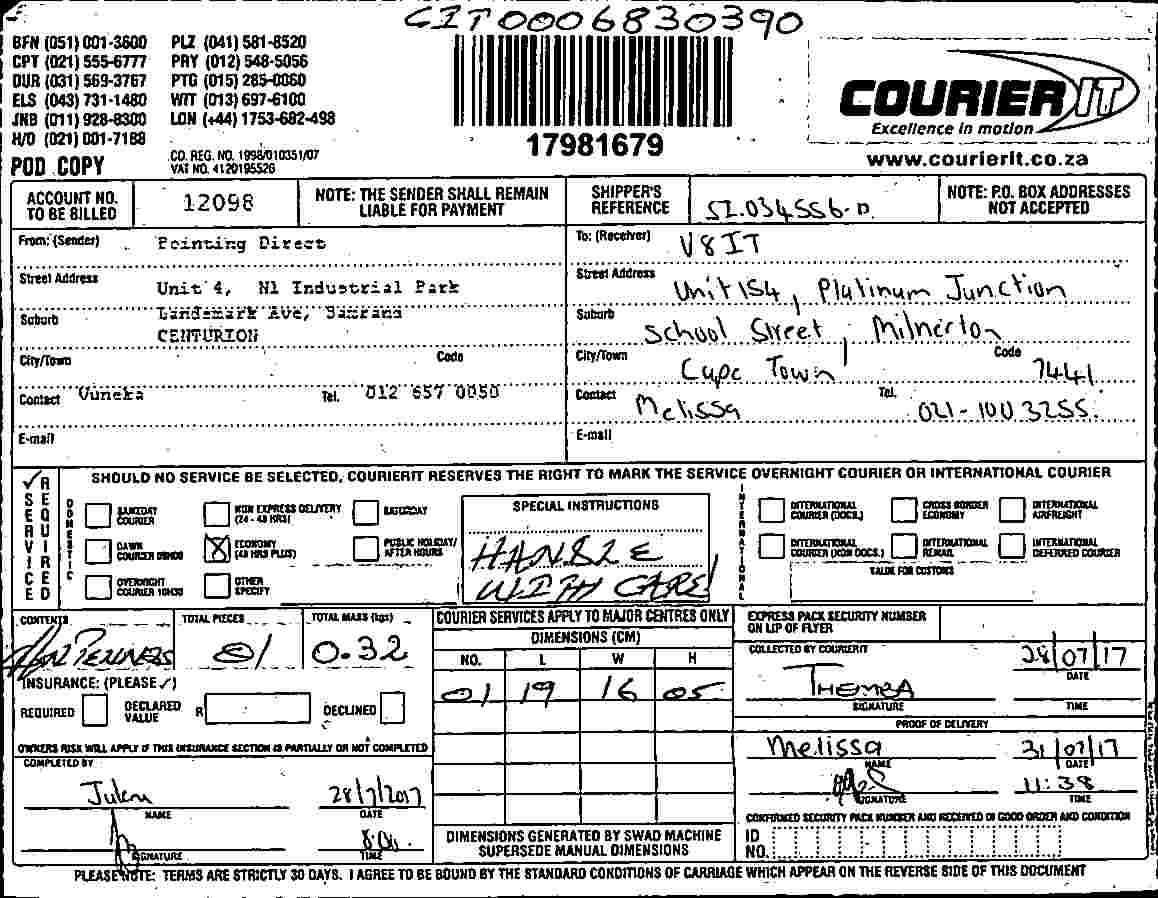 CIT0006830390
BFN (051) 001-3600 PLZ (041) 581-8520
CPT (021) 555-6777 PRY (012) 548-5056
DUR (031) 569-3767 PTG (015) 285-0060
ELS (043) 731-1480 WIT (013) 697-6100
JNB (011) 928-8300 LON (+44) 1753-682-498
H/O (021) 001-7188
POD COPY
CO. REG. NO. 1998/010351/07
VAT NO. 4120195526
17981679
COURIER IT
Excellence in motion
www.courierit.co.za
ACCOUNT NO. TO BE BILLED 12098
NOTE: THE SENDER SHALL REMAIN LIABLE FOR PAYMENT
SHIPPER'S REFERENCE SI.034556-D
NOTE: P.O. BOX ADDRESSES NOT ACCEPTED
From: (Sender) Pointing Direct
Street Address Unit 4, N1 Industrial Park
Suburb Landsmark Ave, Samrand
CENTURION
City/Town Code
Contact Vuneka Tel. 012 657 0050
E-mail
To: (Receiver) V8IT
Street Address Unit 154, Platinum Junction
Suburb School Street, Milnerton
City/Town Cape Town Code 7441
Contact Melissa Tel. 021-100 3255
E-mail
SERVICE REQUIRED
SHOULD NO SERVICE BE SELECTED, COURIERIT RESERVES THE RIGHT TO MARK THE SERVICE OVERNIGHT COURIER OR INTERNATIONAL COURIER
DOMESTIC
SAMEDAY COURIER
NON EXPRESS DELIVERY (24 - 48 HRS)
SATURDAY
DAWN COURIER 09H00
ECONOMY (48 HRS PLUS)
PUBLIC HOLIDAY/ AFTER HOURS
OVERNIGHT COURIER 10H30
OTHER SPECIFY
SPECIAL INSTRUCTIONS
HANDLE
WITH CARE
INTERNATIONAL
INTERNATIONAL COURIER (DOCS.)
CROSS BORDER ECONOMY
INTERNATIONAL AIRFREIGHT
INTERNATIONAL COURIER (NON DOCS.)
INTERNATIONAL REMAIL
INTERNATIONAL DEFERRED COURIER
VALUE FOR CUSTOMS
CONTENTS
TOTAL PIECES 01
TOTAL MASS (kgs) 0.32
INSURANCE: (PLEASE ✓)
REQUIRED DECLARED VALUE R DECLINED
OWNERS RISK WILL APPLY IF THIS INSURANCE SECTION IS PARTIALLY OR NOT COMPLETED
COMPLETED BY
NAME 28/7/2017 DATE
SIGNATURE TIME
COURIER SERVICES APPLY TO MAJOR CENTRES ONLY
DIMENSIONS (CM)
NO. L W H
01 19 16 05
DIMENSIONS GENERATED BY SWAD MACHINE SUPERSEDE MANUAL DIMENSIONS
EXPRESS PACK SECURITY NUMBER ON LIP OF FLYER
COLLECTED BY COURIERIT 28/07/17
DATE
THEMBA
SIGNATURE TIME
PROOF OF DELIVERY
Melissa 31/07/17
NAME DATE
11:38
SIGNATURE TIME
CONFIRMED SECURITY PACK NUMBER AND RECEIVED IN GOOD ORDER AND CONDITION
ID NO.
PLEASE NOTE: TERMS ARE STRICTLY 30 DAYS. I AGREE TO BE BOUND BY THE STANDARD CONDITIONS OF CARRIAGE WHICH APPEAR ON THE REVERSE SIDE OF THIS DOCUMENT